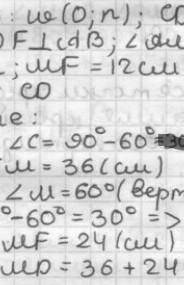 : ω(O;n), CD
DF⊥cdB; ∠
; MF = 12см
CD
е:
∠C = 90°-60°=30
M = 36(см)
∠M = 60°(верт
°-60° = 30° =>
MF = 24(см)
MD = 36 + 24